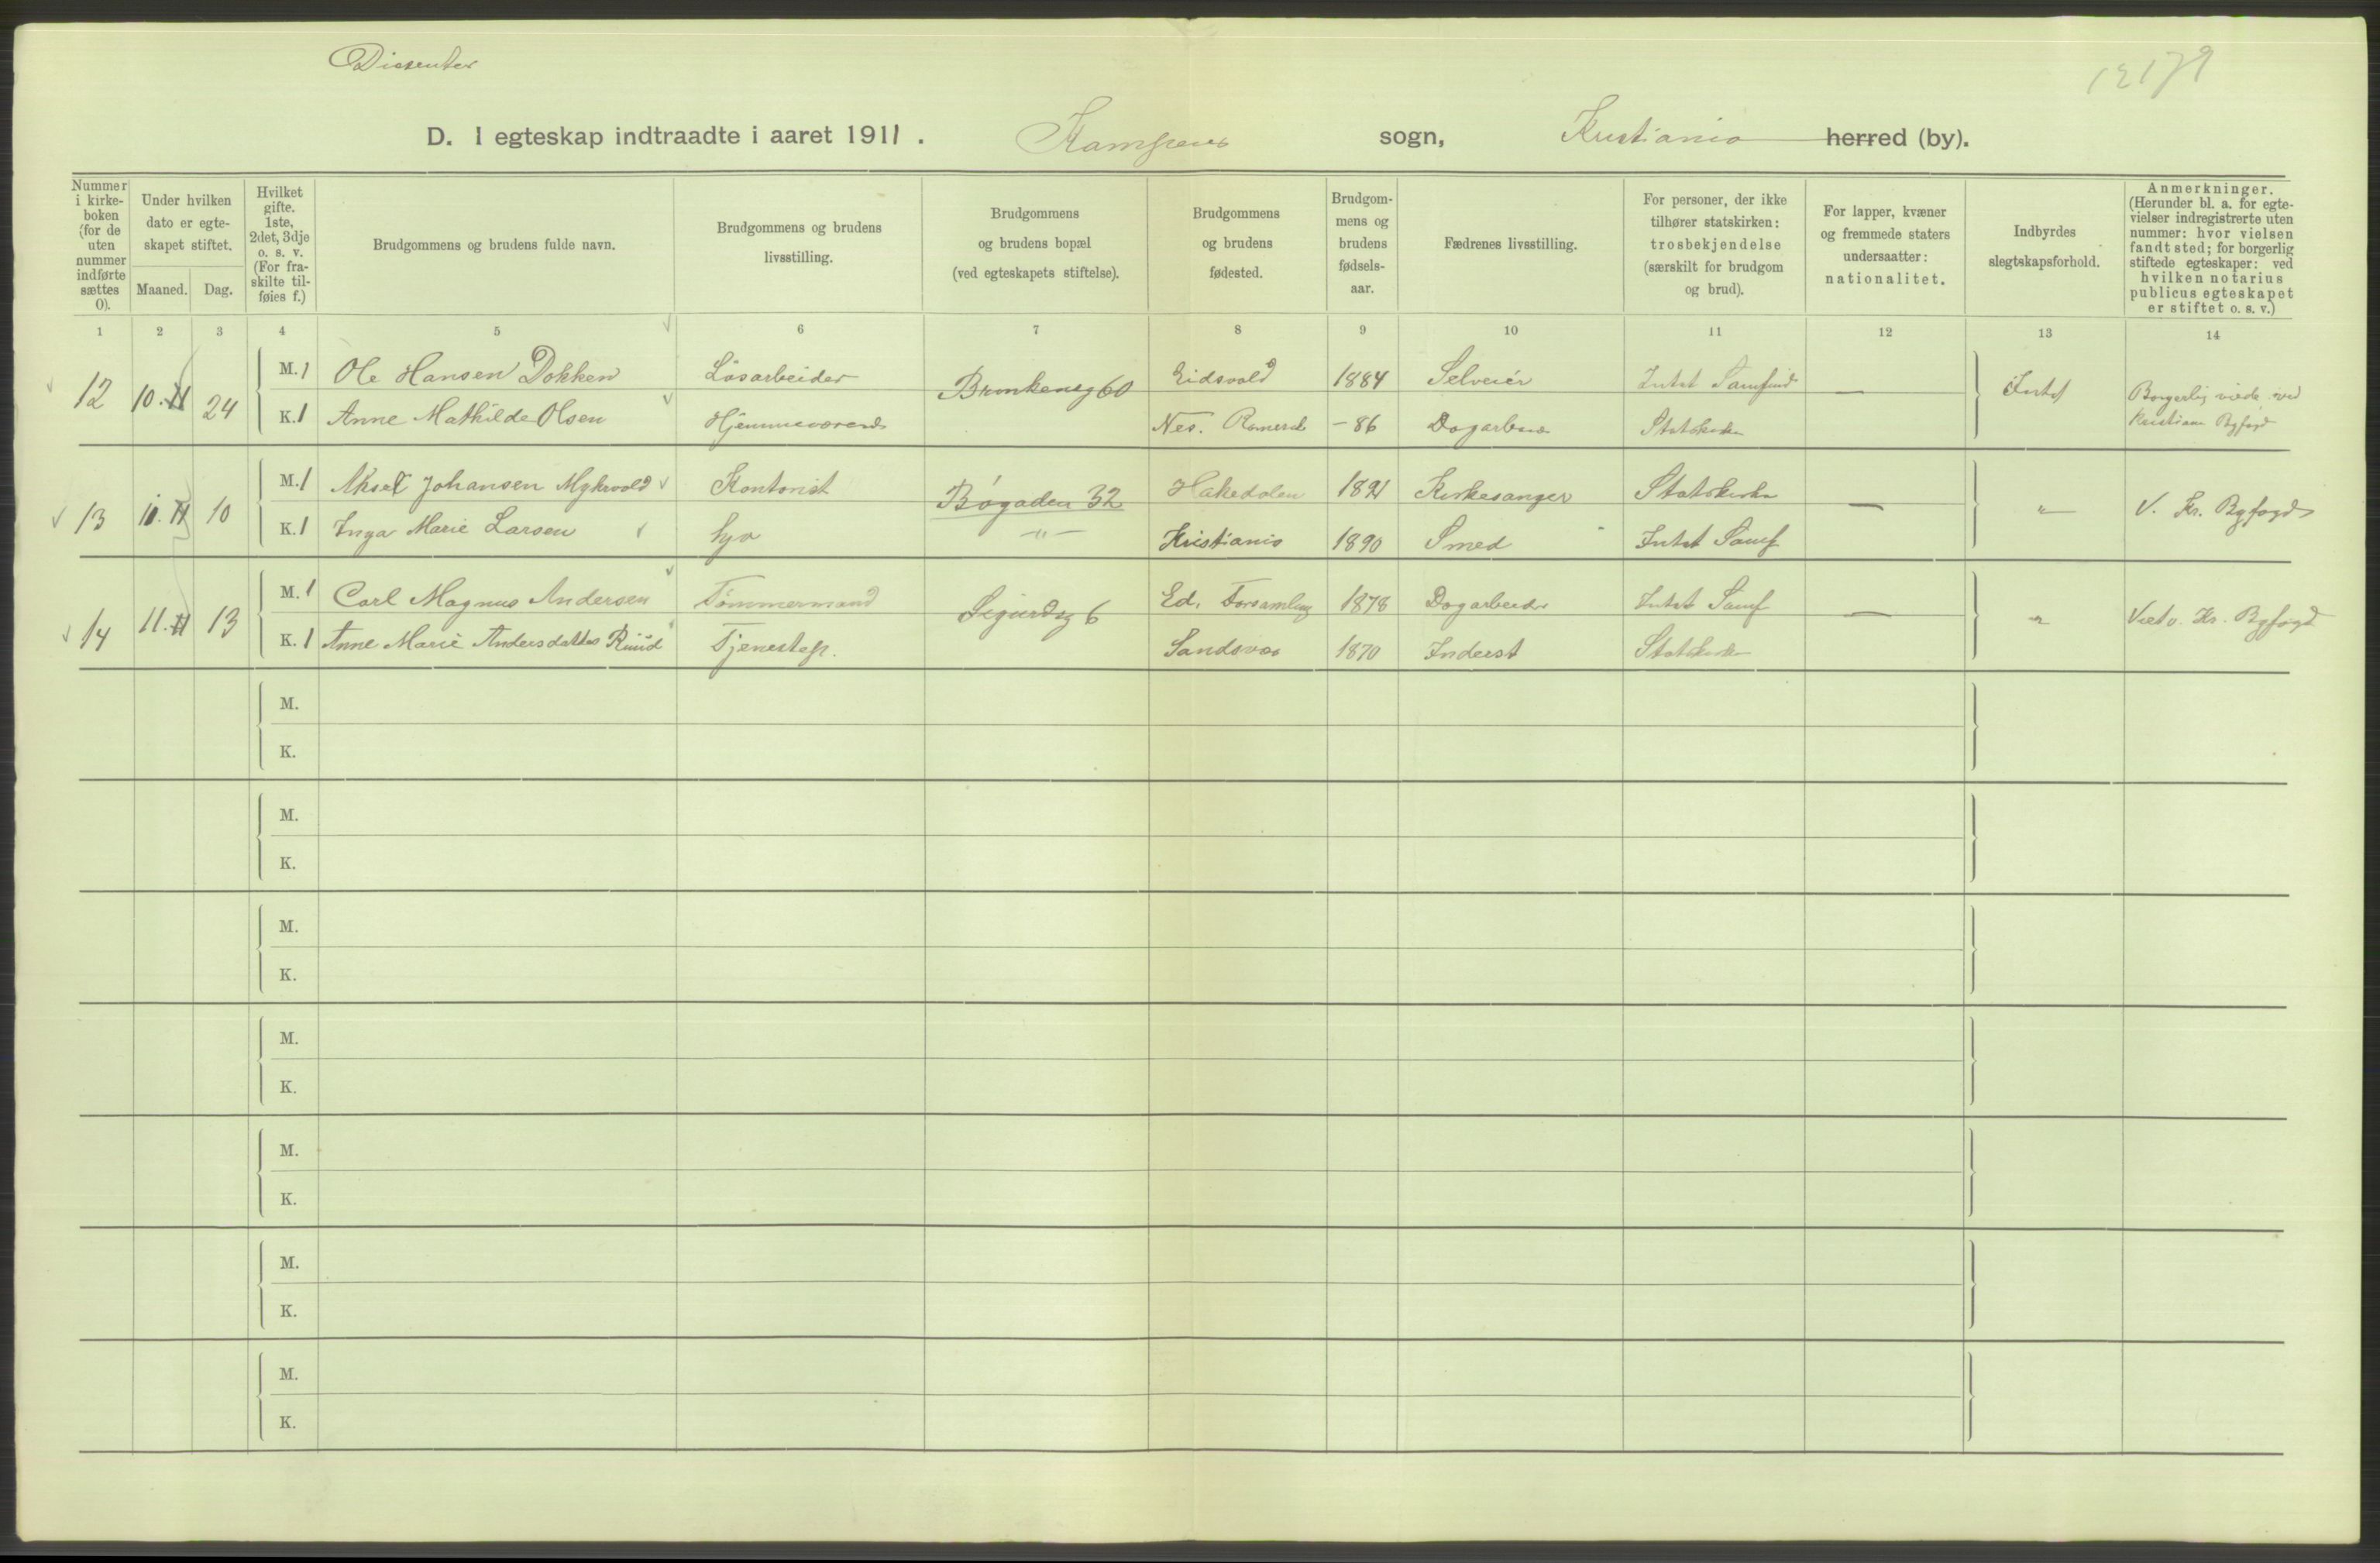 Dissenter
12179
D. I egteskap indtraadte i aaret 1911. Kampens sogn, Kristiania herred (by).
Nummer i kirkeboken (for de uten nummer indførte sættes 0).
Under hvilken dato er egteskapet stiftet.
Maaned. Dag.
Hvilket gifte. 1ste, 2det, 3dje o. s. v. (For fraskilte tilføies f.)
Brudgommens og brudens fulde navn.
Brudgommens og brudens livsstilling.
Brudgommens og brudens bopæl (ved egteskapets stiftelse).
Brudgommens og brudens fødested.
Brudgommens og brudens fødselsaar.
Fædrenes livsstilling.
For personer, der ikke tilhører statskirken: trosbekjendelse (særskilt for brudgom og brud).
For lapper, kvæner og fremmede staters undersaatter: nationalitet.
Indbyrdes slegtskapsforhold.
Anmerkninger. (Herunder bl. a. for egtevielser indregistrerte uten nummer: hvor vielsen fandt sted; for borgerlig stiftede egteskaper: ved hvilken notarius publicus egteskapet er stiftet o. s. v.)
1 2 3 4 5 6 7 8 9 10 11 12 13 14
12 10. 24 M. 1 Ole Hansen Dokken Løsarbeider Brinkeng 60 Eidsvold 1884 Selveier Intet Samfund — Intet Borgerlig viede ved
K. 1 Anne Mathilde Olsen Hjemmeværende Nes. Romerik -86 Dagarbeid Statskirken Kristiania Byfogd
13 10 M. 1 Aksel Johansen Mykvold Kontorist Bøgaden 32 Hakedalen 1891 Kirkesanger Statskirken — " V. Kr. Byfogd
K. 1 Inga Marie Larsen Sya — " — Kristiania 1890 Smed Intet Samf
14 11. 13 M. 1 Carl Magnus Andersen Tømmermand Sigurdsg 6 Ed, Forsamling 1878 Dagarbeider Intet Samf — " Viet v. Kr. Byfogd
K. 1 Anne Marie Andersdatter Ruud Tjenestep. Sandsvær 1870 Inderst Statskirken
M.
K.
M.
K.
M.
K.
M.
K.
M.
K.
M.
K.
M.
K.